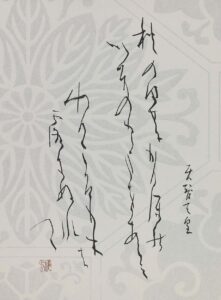 天智天皇
秋の田のかりほの
いほのとまをあらみ
わかころも手は
露にぬれつゝ